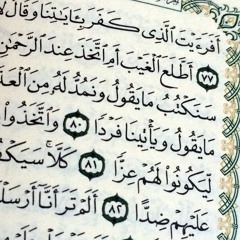 أَفَرَءَيْتَ ٱلَّذِى كَفَرَ بِـَٔايَـٰتِنَا وَقَالَ
٧٧ أَطَّلَعَ ٱلْغَيْبَ أَمِ ٱتَّخَذَ عِندَ ٱلرَّحْمَـٰنِ
سَنَكْتُبُ مَا يَقُولُ وَنَمُدُّ لَهُۥ مِنَ ٱلْعَذَ
مَا يَقُولُ وَيَأْتِينَا فَرْدًا ٨٠ وَٱتَّخَذُوا۟
لِّيَكُونُوا۟ لَهُمْ عِزًّا ٨١ كَلَّا ۚ سَيَكْفُ
عَلَيْهِمْ ضِدًّا ٨٢ أَلَمْ تَرَ أَنَّآ أَرْسَلْ